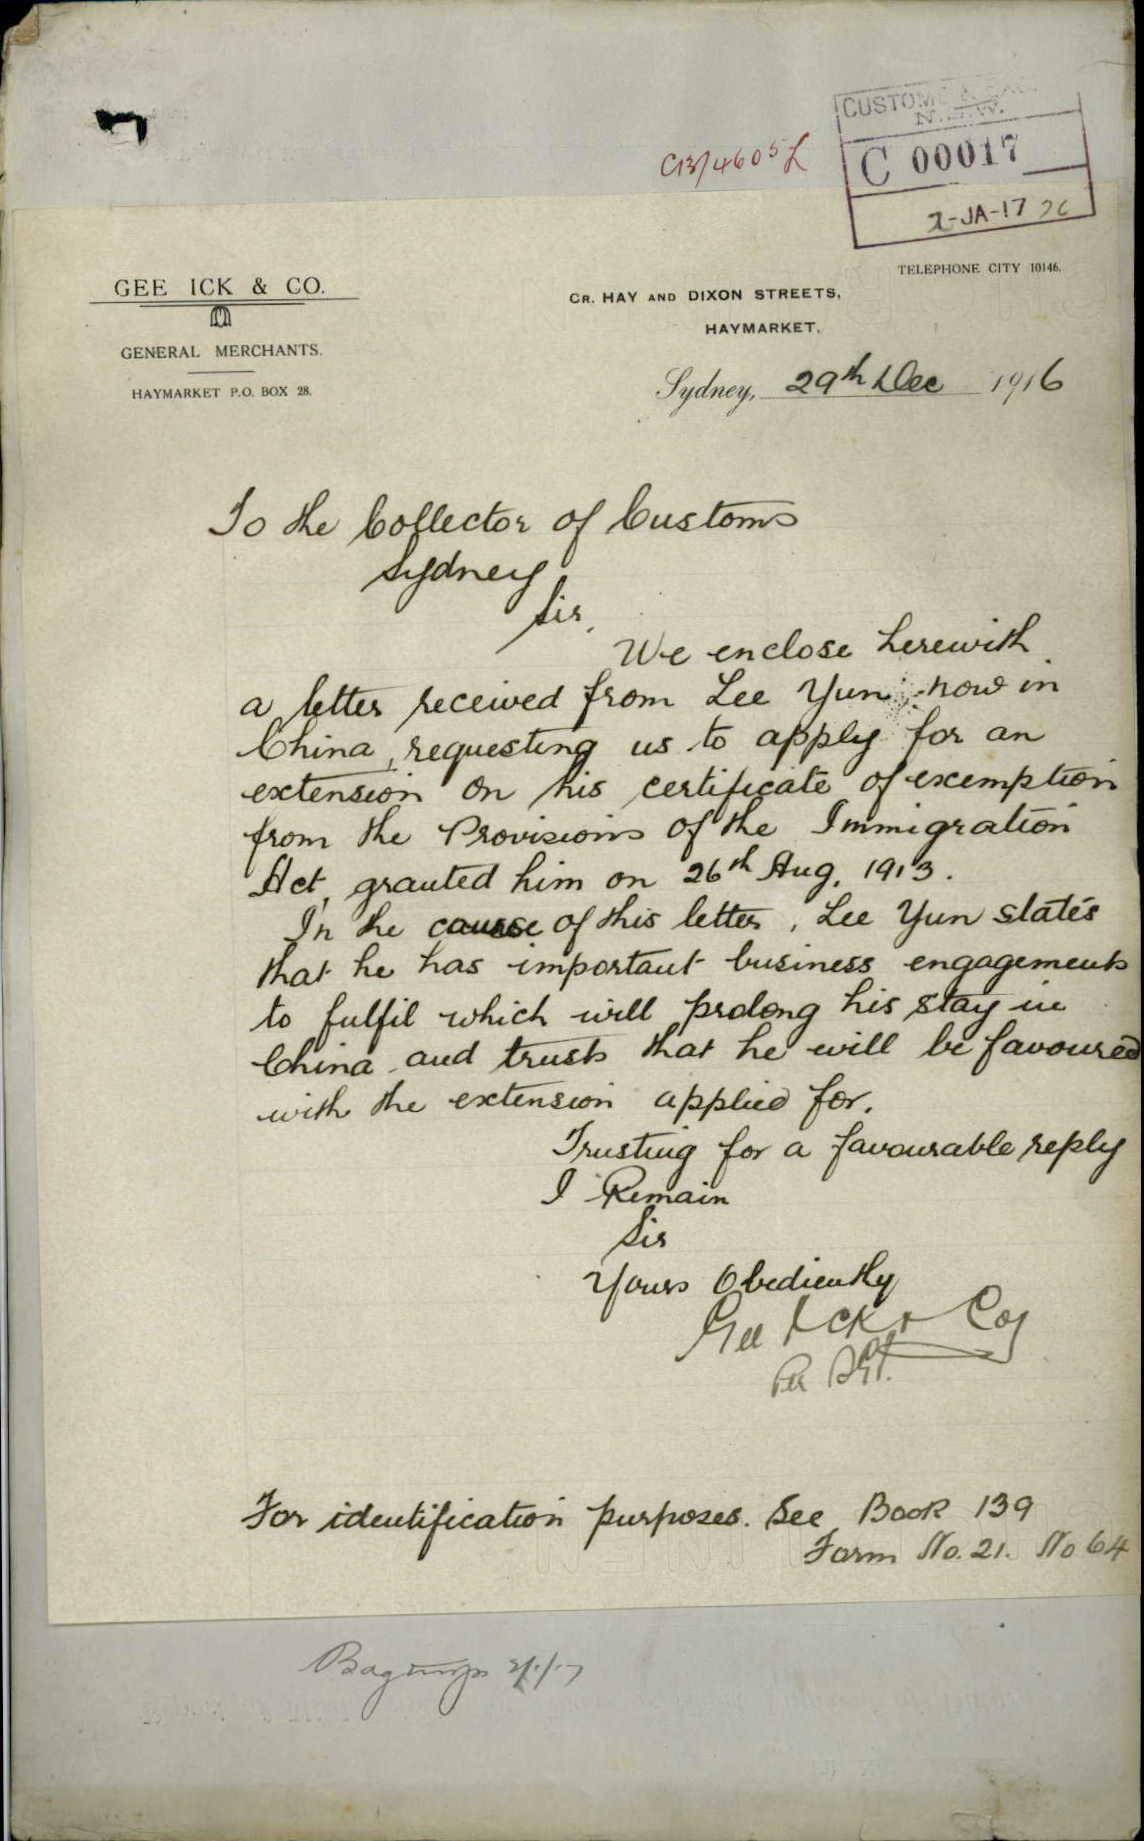 C13/4605 L
CUSTOMS
N.S.W.
C 00017
2-JA-17 26
TELEPHONE CITY 10146.
GEE ICK & CO.
GENERAL MERCHANTS.
HAYMARKET P.O. BOX 28.
CR. HAY AND DIXON STREETS,
HAYMARKET,
Sydney, 29th Dec 1916
To the Collector of Customs
Sydney
Sir,
We enclose herewith
a letter received from Lee Yun, now in
China, requesting us to apply for an
extension on his certificate of exemption
from the Provisions of the Immigration
Act, granted him on 26th Aug, 1913.
In the course of this letter, Lee Yun states
that he has important business engagements
to fulfil which will prolong his stay in
China and trusts that he will be favoured
with the extension applied for.
Trusting for a favourable reply
I Remain
Sir
Yours Obediently
Gee Ick & Coy
Per
For identification purposes. See Book 139
Form No. 21. No 64
2/1/17